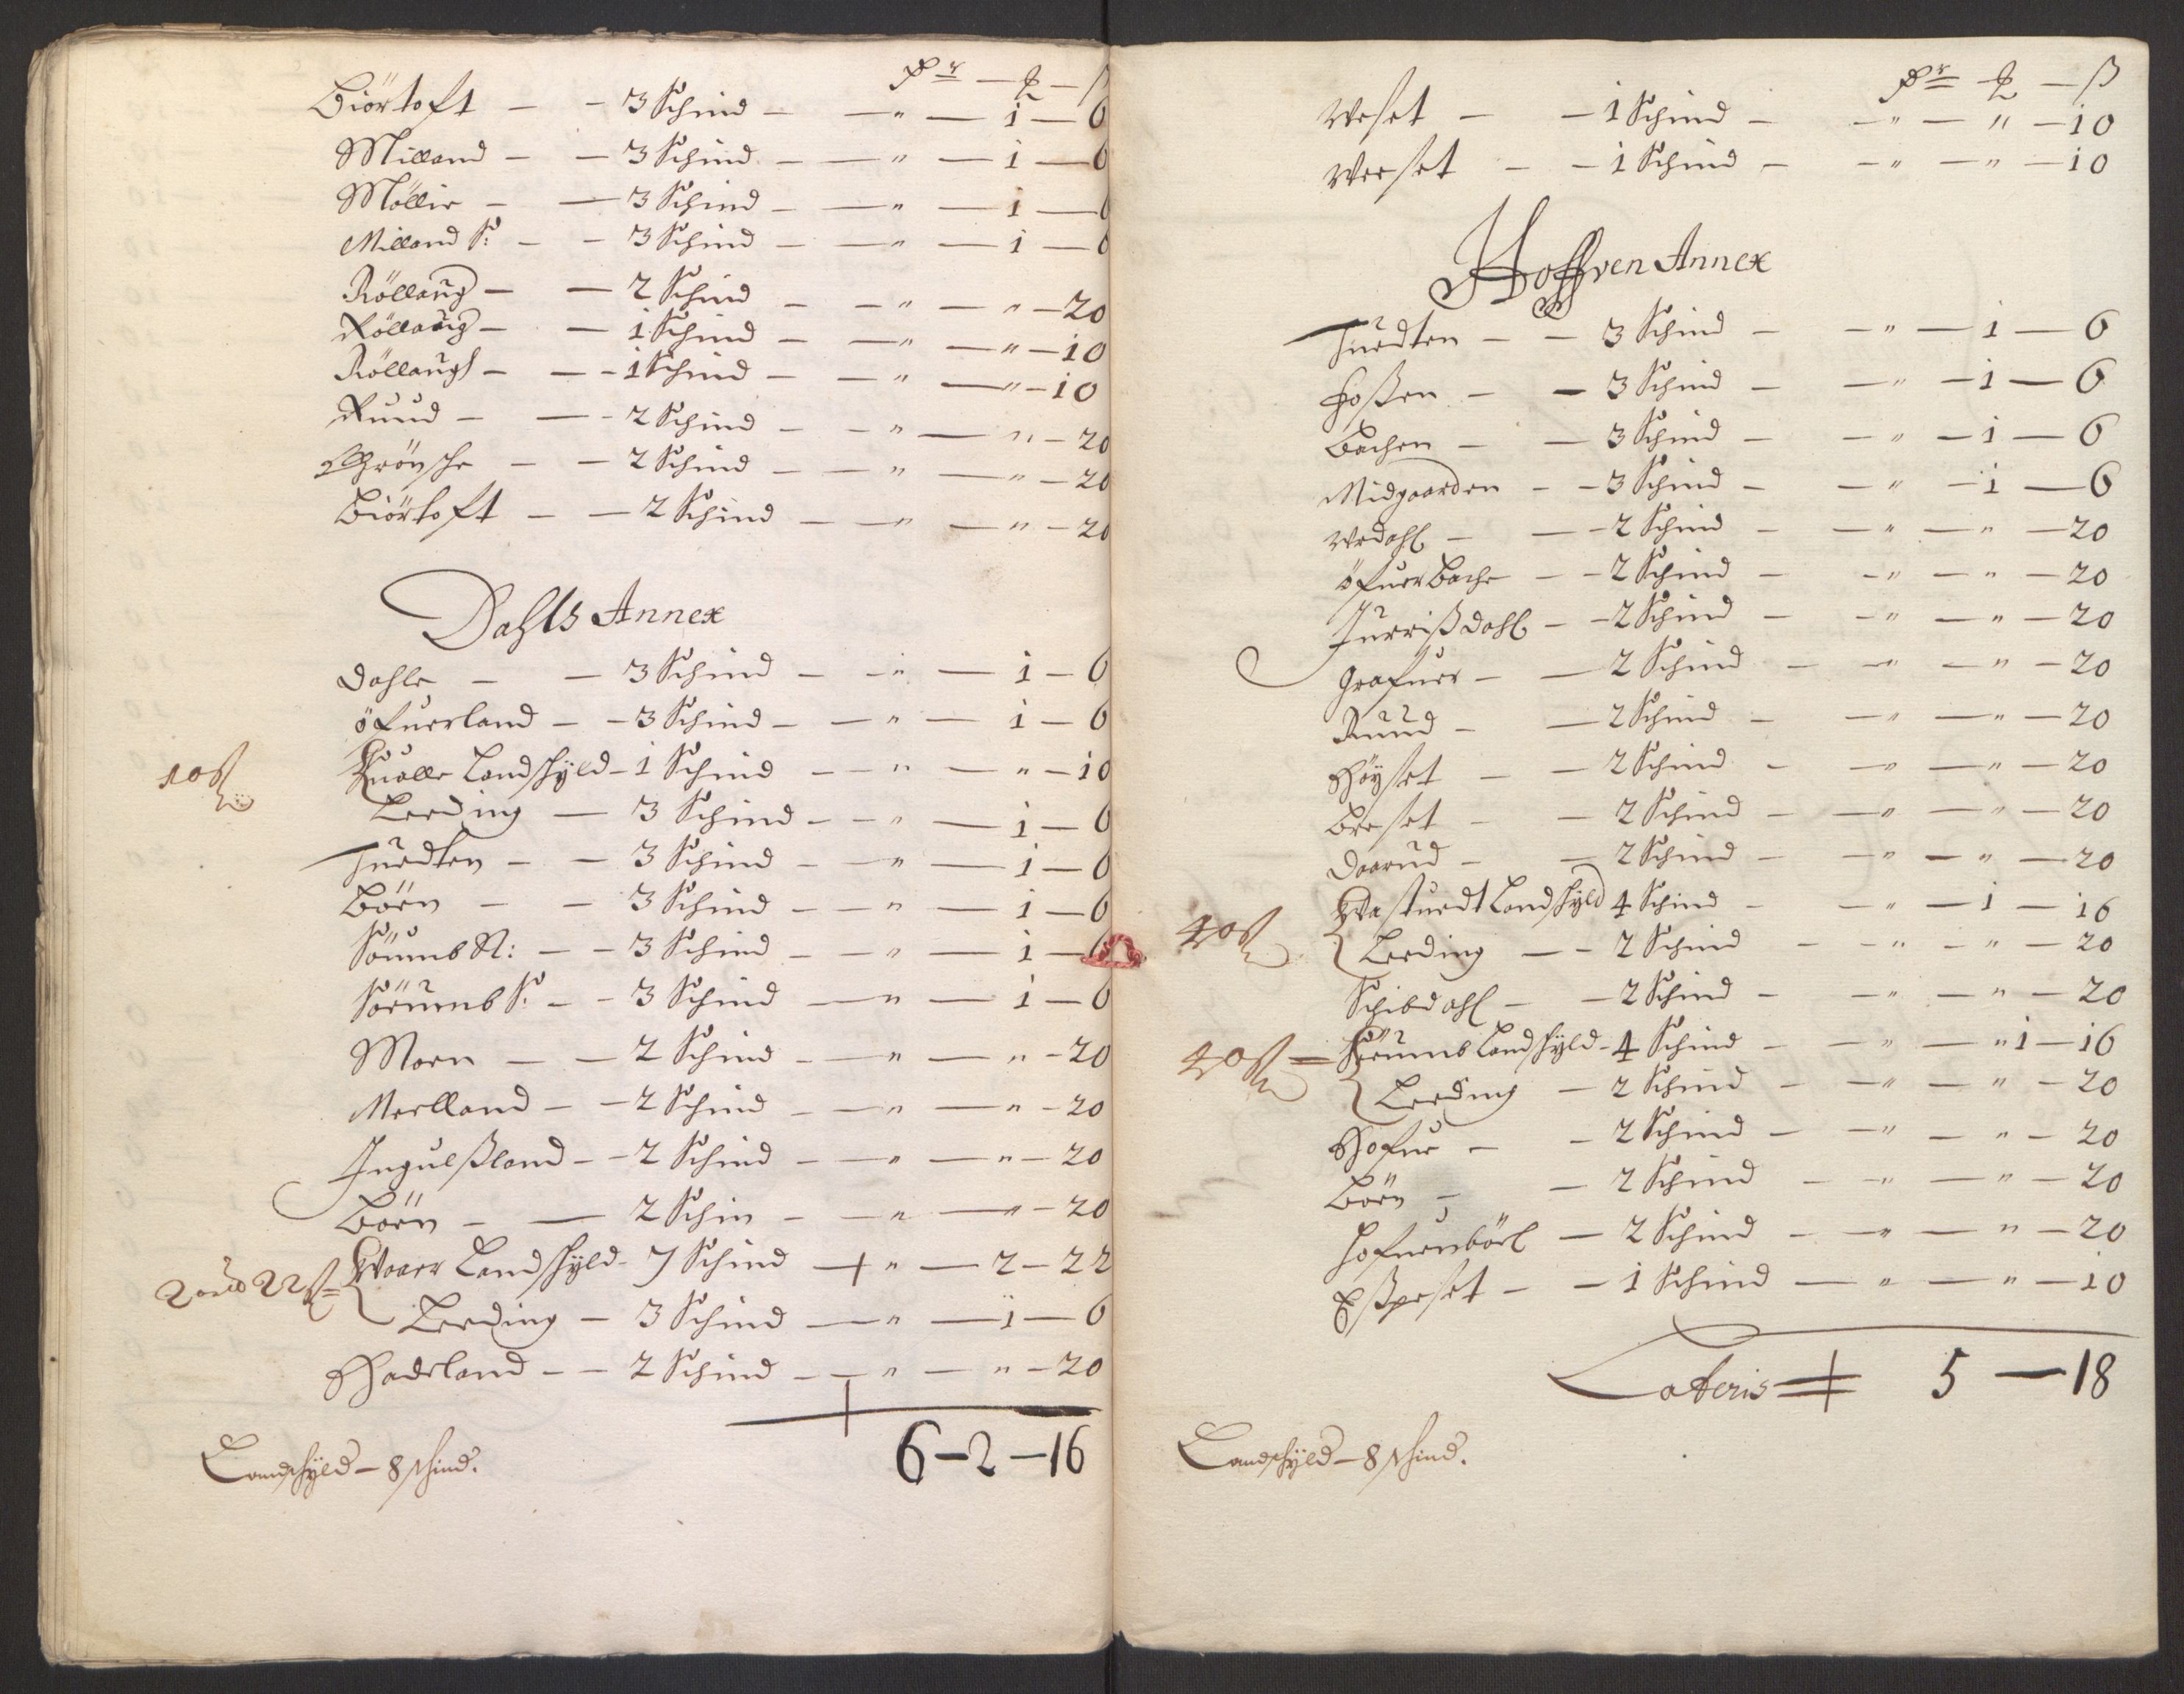 Dr — ꝗ — ß
Biörtoft — — 3 Schind — — " — 1 — 6
Milland — — 3 Schind — — " — 1 — 6
Möllir — — 3 Schind — — " — 1 — 6
Milland S: — — 3 Schind — — " — 1 — 6
Röllaug — — 2 Schind — — " — " — 20
Röllaug — — 1 Schind — — " — " — 10
Röllaugs — — 1 Schind — — " — " — 10
Ruud — — 2 Schind — — " — " — 20
Grönsche — — 2 Schind — — " — " — 20
Biörtoft — — 2 Schind — — " — " — 20
Dahls Annex
Dahle — — 3 Schind — — " — 1 — 6
öfuerland — — 3 Schind — — " — 1 — 6
10ß Qualle Landschÿld — 1 Schind — — " — " — 10
Leeding — 3 Schind — — " — 1 — 6
Tuedten — — 3 Schind — — " — 1 — 6
Börn — — 3 Schind — — " — 1 — 6
Söumb N: — — 3 Schind — — " — 1 — 6
Sörumb S: — — 3 Schind — — " — 1 — 6
Moen — — 2 Schind — — " — " — 20
Merlland — — 2 Schind — — " — " — 20
Ingulßland — — 2 Schind — — " — " — 20
Börn — — 2 Schin — — " — " — 20
2 ort 22ß Waaer Landschÿld — 7 Schind — " — 2 — 22
Leeding — 3 Schind — " — 1 — 6
Haderland — — 2 Schind — — " — " — 20
6 — 2 — 16
Landschÿld — 8 schind.
Dr — ꝗ — ß
Weset — — 1 Schind — — " — " — 10
Weeset — — 1 Schind — — " — " — 10
Hoffven Annex
Tuedten — — 3 Schind — — " — 1 — 6
Foßen — — 3 Schind — — " — 1 — 6
Bachen — — 3 Schind — — " — 1 — 6
Midgaarden — — 3 Schind — — " — 1 — 6
Wrdahl — — 2 Schind — — " — " — 20
öfuerBache — — 2 Schind — — " — " — 20
Jurrißdahl — — 2 Schind — — " — " — 20
Grafuer — — 2 Schind — — " — " — 20
Ruud — — 2 Schind — — " — " — 20
Höyset — — 2 Schind — — " — " — 20
Breset — — 2 Schind — — " — " — 20
Daarud — — 2 Schind — — " — " — 20
40ß Wastuedt Landschÿld 4 Schind — — " — 1 — 16
Leeding — — 2 Schind — — " — " — 20
Schibdahl — — 2 Schind — — " — " — 20
40ß Sörumb Landschÿld — 4 Schind — — " — " 1 — 16
Leeding — 2 Schind — — " — " — 20
Hofue — — 2 Schind — — " — " — 20
Börn — — 2 Schind — — " — " — 20
Hofuenbörl — 2 Schind — — " — " — 20
Eßpeset — — 1 Schind — — " — " — 10
Lateris 5 — 18
Landschÿld — 8 schind.